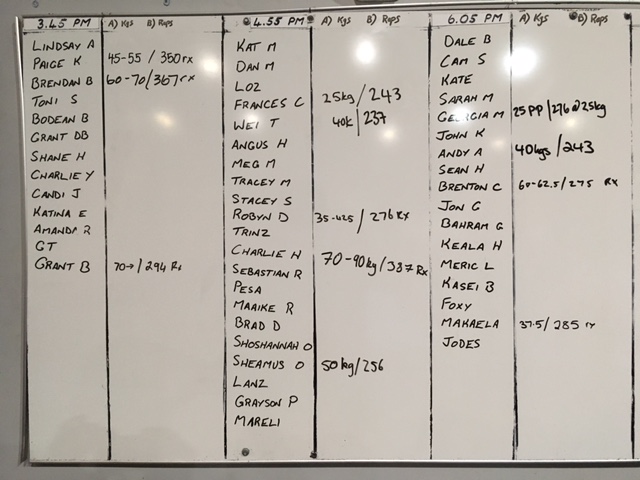 3.45 PM A) Kgs B) Reps
LINDSAY A
PAIGE K 45-55 / 350 rx
BRENDAN B 60-70/367 rx
TONI S
BODEAN B
GRANT DB
SHANE H
CHARLIE Y
CANDI J
KATINA E
AMANDA R
GT
GRANT B 70→/294 Rx
4.55 PM A) Kgs B) Reps
KAT M
DAN M
LOZ
FRANCES C 25kg / 243
WEI T 40k / 237
ANGUS H
MEG M
TRACEY M
STACEY S
ROBYN D 35-42.5 / 276 Rx
TRINZ
CHARLIE H
SEBASTIAN R 70-90kg / 337 Rx
PESA
MAAIKE R
BRAD D
SHOSHANNAH O
SHEAMUS O 50kg/256
LANZ
GRAYSON P
MARELI
6.05 PM A) Kgs B) Reps
DALE B
CAM S
KATE
SARAH M
GEORGIA M 25PP/276@25kg
JOHN K
ANDY A 40kgs /243
SEAN H
BRENTON C 60-62.5/275 Rx
JON G
BAHRAM G
KEALA H
MERIC L
KASEI B
FOXY
MAKAELA 37.5/285 rx
JODES